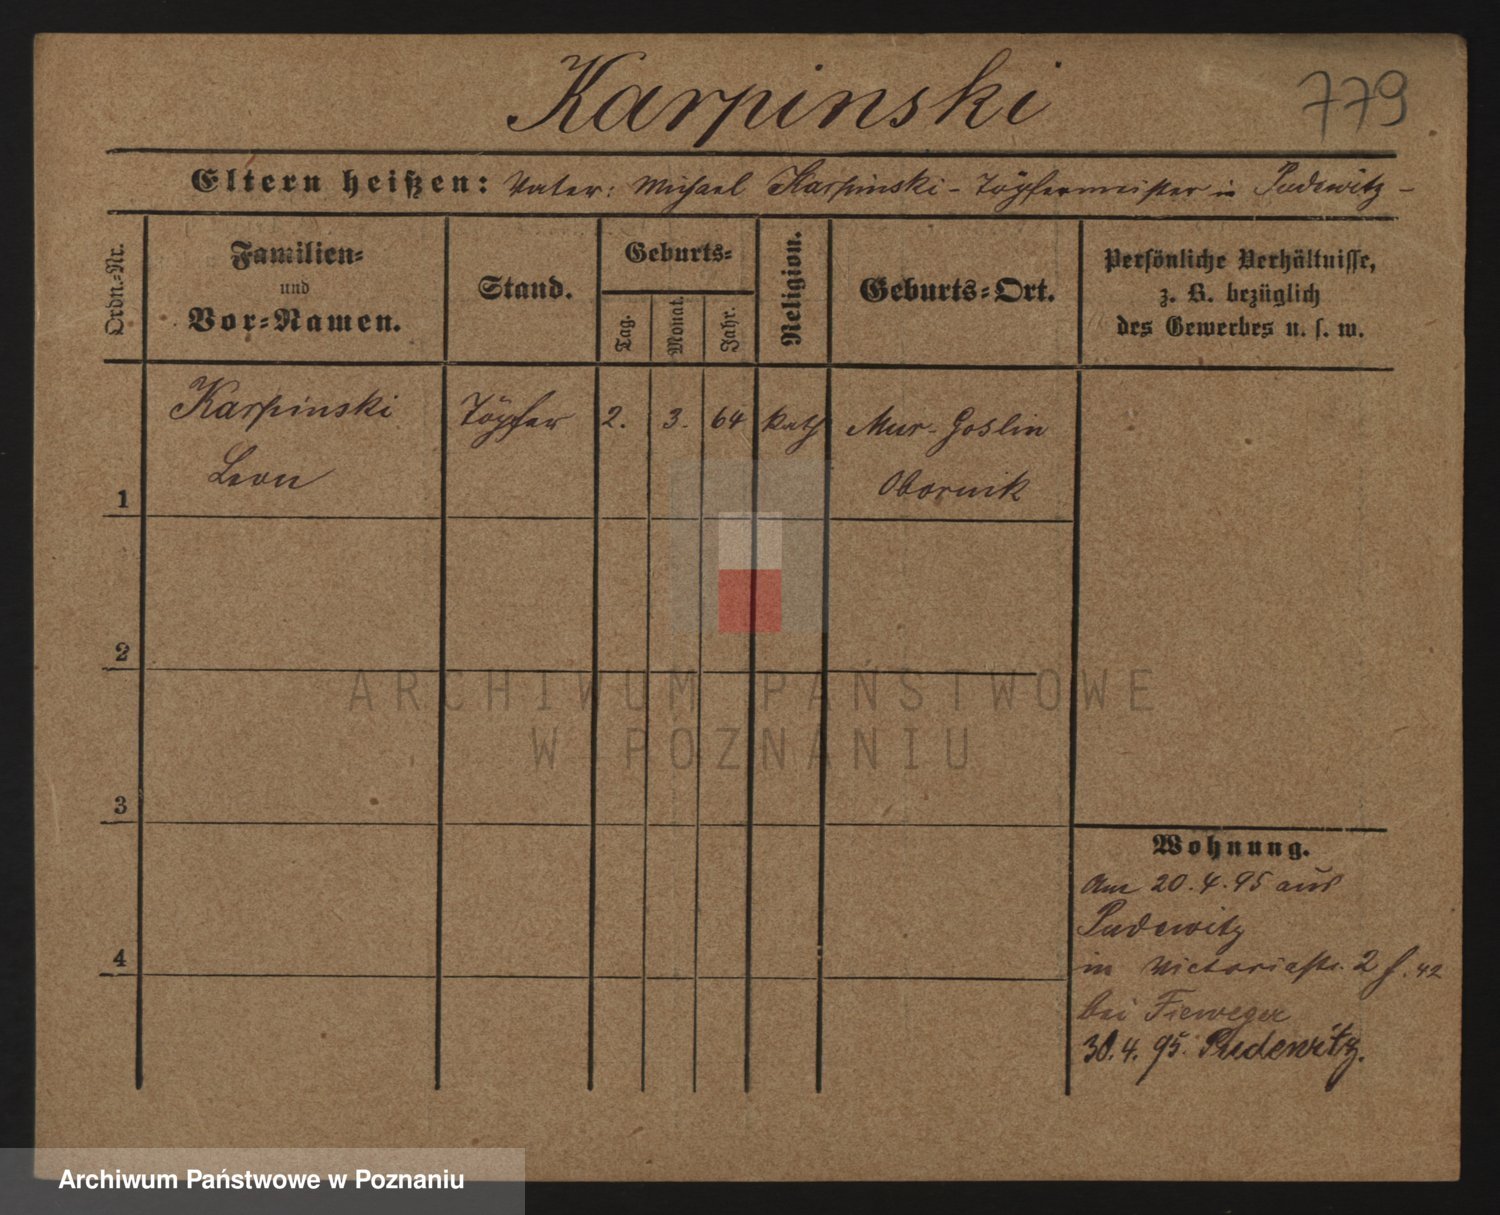 Karpinski
779
Eltern heißen: Vater: Michael Karpinski - Töpfermeister in Pudewitz -
Ordn.=Nr.
Familien=
und
Vor=Namen.
Stand.
Geburts=
Tag.
Monat.
Jahr.
Religion.
Geburts=Ort.
Persönliche Verhältnisse,
z. B. bezüglich
des Gewerbes u. s. w.
Karpinski Töpfer 2. 3. 64 kath Mur-Goslin
Leon Obornik
1
2
ARCHIWUM PAŃSTWOWE
W POZNANIU
3
Wohnung.
Am 20.4.95 aus
Pudewitz
4
in Victoriastr. 2 42
bei Fieweger
30.4.95. Pudewitz.
Archiwum Państwowe w Poznaniu